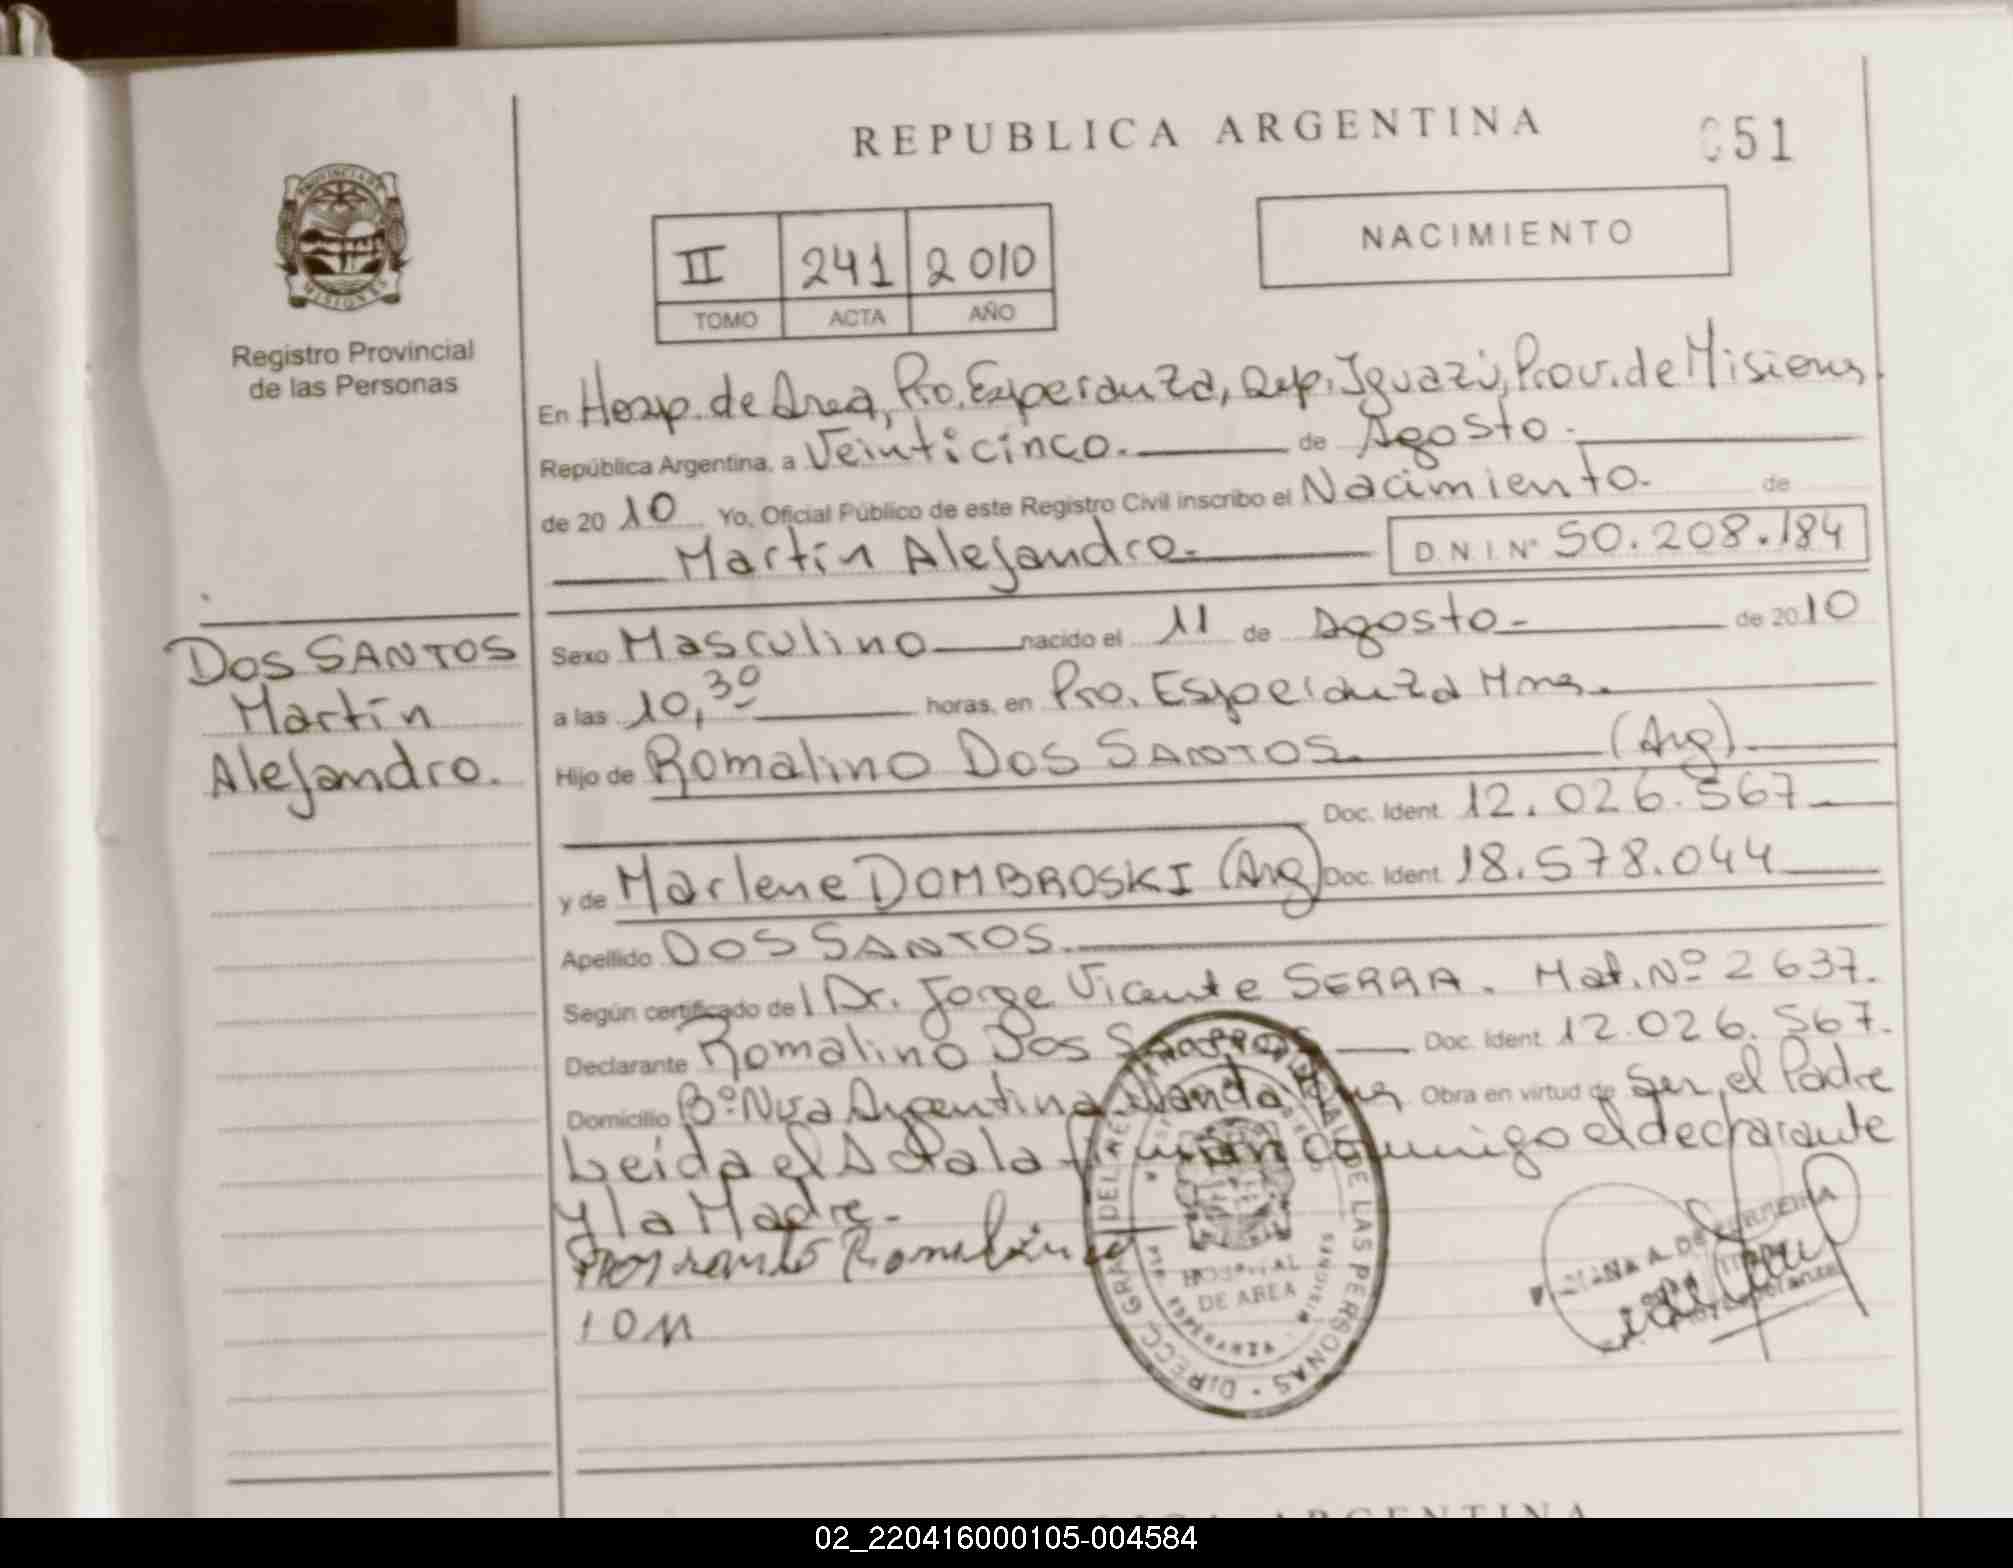 REPUBLICA ARGENTINA
051
PROVINCIA DE
MISIONES
Registro Provincial
de las Personas
II 241 2010
TOMO ACTA AÑO
NACIMIENTO
En Hosp. de Area, Pto. Esperanza, Dep. Iguazú, Prov. de Misiones.
República Argentina, a Veinticinco. de Agosto.
de 2010 Yo, Oficial Público de este Registro Civil inscribo el Nacimiento. de
Martín Alejandro. D.N.I. Nº 50.208.184
DOS SANTOS
Martín
Alejandro.
Sexo Masculino nacido el 11 de Agosto.- de 2010
a las 10,30 horas, en Pto. Esperanza Mnes.
Hijo de Romalino DOS SANTOS. (Arg)
Doc. Ident. 12.026.567
y de Marlene DOMBROSKI (Arg) Doc. Ident. 18.578.044
Apellido DOS SANTOS.
Según certificado del Dr. Jorge Vicente SERRA. Mat. Nº 2637.
Declarante Romalino Dos Santos Doc. Ident. 12.026.567.
Domicilio Bº Nva Argentina Wanda Mnes Obra en virtud de ser el Padre
Leída el Acta la firman conmigo el declarante
y la Madre.-
Romalino
DIRECC. GRAL. DEL REG. PROVINCIAL DE LAS PERSONAS
HOSPITAL
DE AREA
PTO ESPERANZA - MISIONES
REPUBLICA ARGENTINA
02_220416000105-004584